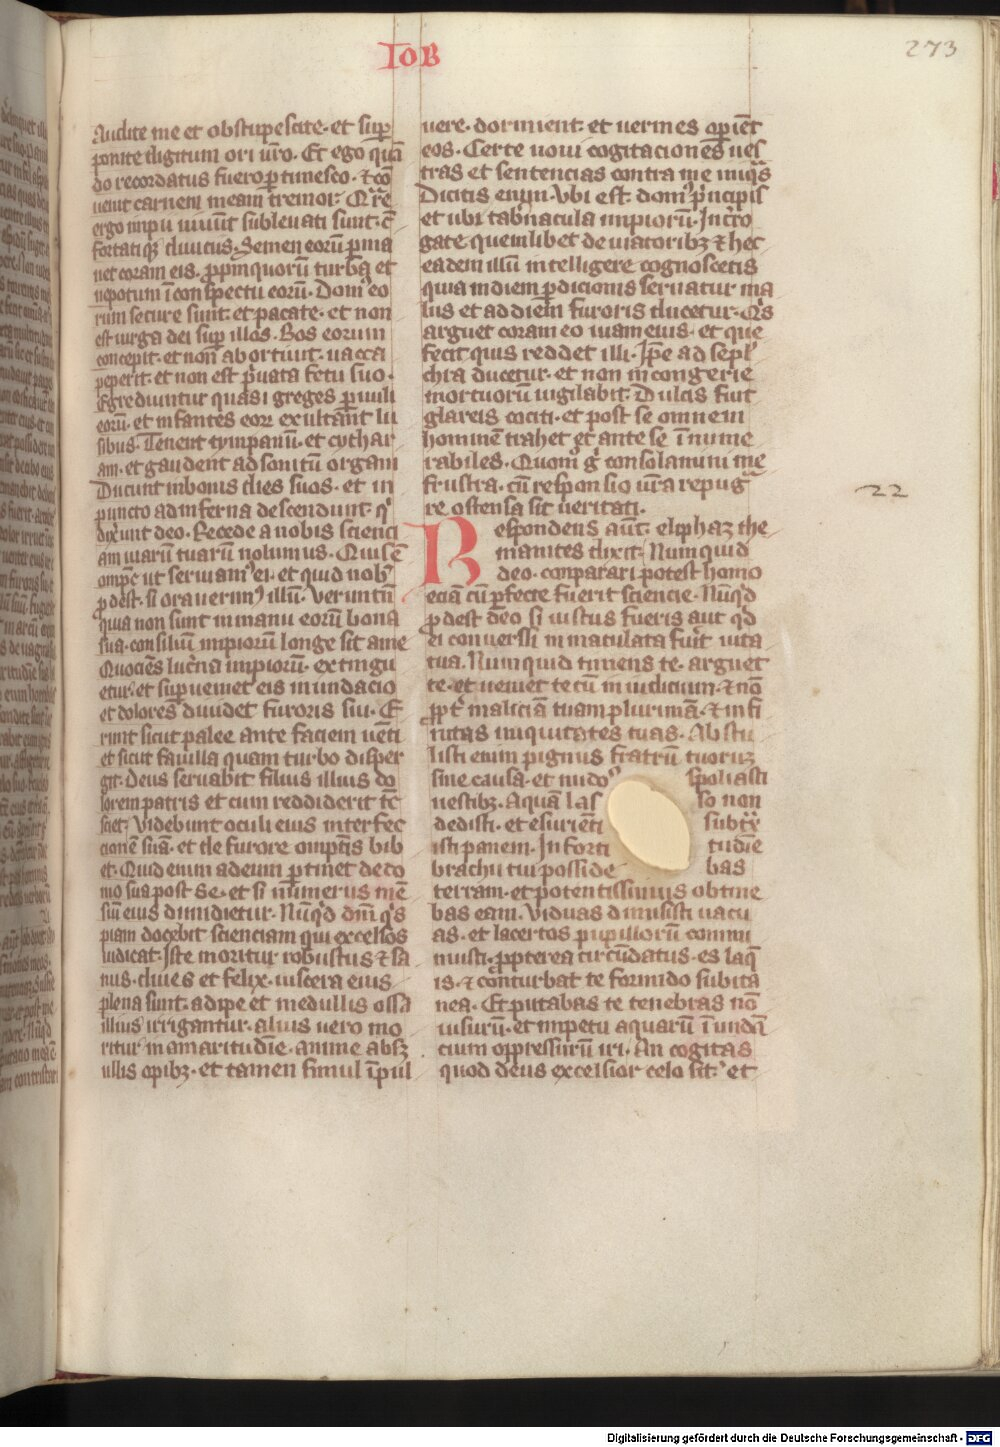 IOB
273
Audite me et obstupescite· et sup̄
ponite digitum ori vr̄o· Et ego qn̄
do recordatus fuero ꝑtimesco· ⁊ cō
uenit carnem meam tremor· Qr̄e
ergo impii uiuūt subleuati sunt· ꝯ
fortatiqꝫ diuitiis· Semen eorū ꝑma
net coram eis· ꝓpinquorū turba et
nepotum ī conspectu eorū· Domꝰ eo
rum secure sunt· et pacate· et non
est uirga dei suꝑ illos· Bos eorum
concepit· et non abortiuit· uacca
peperit· et non est pͥuata fetu suo·
Egrediuntur quasi greges ꝑuuli
eorū· et infantes eoꝝ exultant lu
sibus· Tenent tympanū· et cythar
am· et gaudent ad sonitū organi
Ducunt in bonis dies suos· et in
puncto ad inferna descendunt· qͥ
dixerunt deo· Recede a nobis scienci
am uiarū tuarū nolumus· Quis ē
omp̄s ut seruiamꝰ ei· et quid nobͥ
ꝓdest· si orauerimꝰ illū· Verūtn̄
quia non sunt in manu eorū bona
sua· consiliū impiorū longe sit a me
Quociēs luc̄na impiorū· extingu
etur· et suꝑueniet eis inundacio
et dolores diuidet furoris sui· E
runt sicut palee ante faciem uēti
et sicut fauilla quam turbo disper
git· Deus seruabit filiis illius do
lorem patris et cum reddiderit tc̄
sciet· Videbunt oculi eius interfec
cionem suā· et de furore omp̄tis bib
et· Quid enim ad eum ꝑtinet de do
mo sua post se· et si numerus mē
siū eius dimidietur· Nūqͥd dm̄ qͥs
piam docebit scienciam qui excelsos
iudicat· Iste moritur robustus ⁊ sa
nus· diues et felix· uiscera eius
plena sunt· adipe et medullis ossa
illius irrigantur· alius uero mo
ritur in amaritudīe· anime absqꝫ
ullis opibꝫ· et tamen simul ī pul
uere· dormient· et uermes oꝑiēt
eos· Certe noui cogitaciones ues
tras et sentencias contra me iniqͣs
Dicitis enim· Vbi est· domꝰ pͥncipis
et ubi tab̄nacula impiorū· Int̄ro
gate quemlibet de uiatoribꝫ ⁊ hec
eadem illū intelligere cognoscetis
quia in diem ꝑdicionis seruatur ma
lus et ad diem furoris ducetur· Qͥs
arguet coram eo uiam eius· et que
fecit quis reddet illi· Ip̄e ad sepl̄
chra ducetur· et non in congerie
mortuorū uigilabit· Dulcis fuit
glareis cociti· et post se omnem
hominē trahet et ante se īnume
rabiles· Quomͦ gͦ consolamini me
frustra· cū responsio ur̄a repug
re ostensa sit ueritati·
22
Respondens aūt· eliphaz the
manites dixit· Numquid
deo· conparari potest homo
eciā cū ꝑfecte fuerit sciencie· Nūqͥd
ꝓdest deo si iustus fueris aut qͥd
ei conuersi inmaculata fuit uita
tua· Numquid timens te· arguet
te· et ueniet tecū in iudicium· ⁊ nō
ꝓpt̄ maliciā tuam plurimā· ⁊ infi
nitas iniquitates tuas· Abstu
listi enim pignus fratrū tuoruꝫ
sine causa· et nudoꝰ spoliasti
uestibꝫ· Aquā lasso non
dedisti· et esurienti subtͣx
isti panem· In fortitudīe
brachii tui posside bas
terram· et potentissimus obtine
bas eam· Viduas dimisisti uacu
as· et lacertos pupillorū commi
nuisti· ꝓpterea circūdatus· es laqͣ
is· ⁊ conturbat te formido subita
nea· Et putabas te tenebras nō
uisurū· et impetu aquarū īundā
cium oppressurū iri· An cogitas
quod deus excelsior celo sit· et
Digitalisierung gefördert durch die Deutsche Forschungsgemeinschaft - DFG